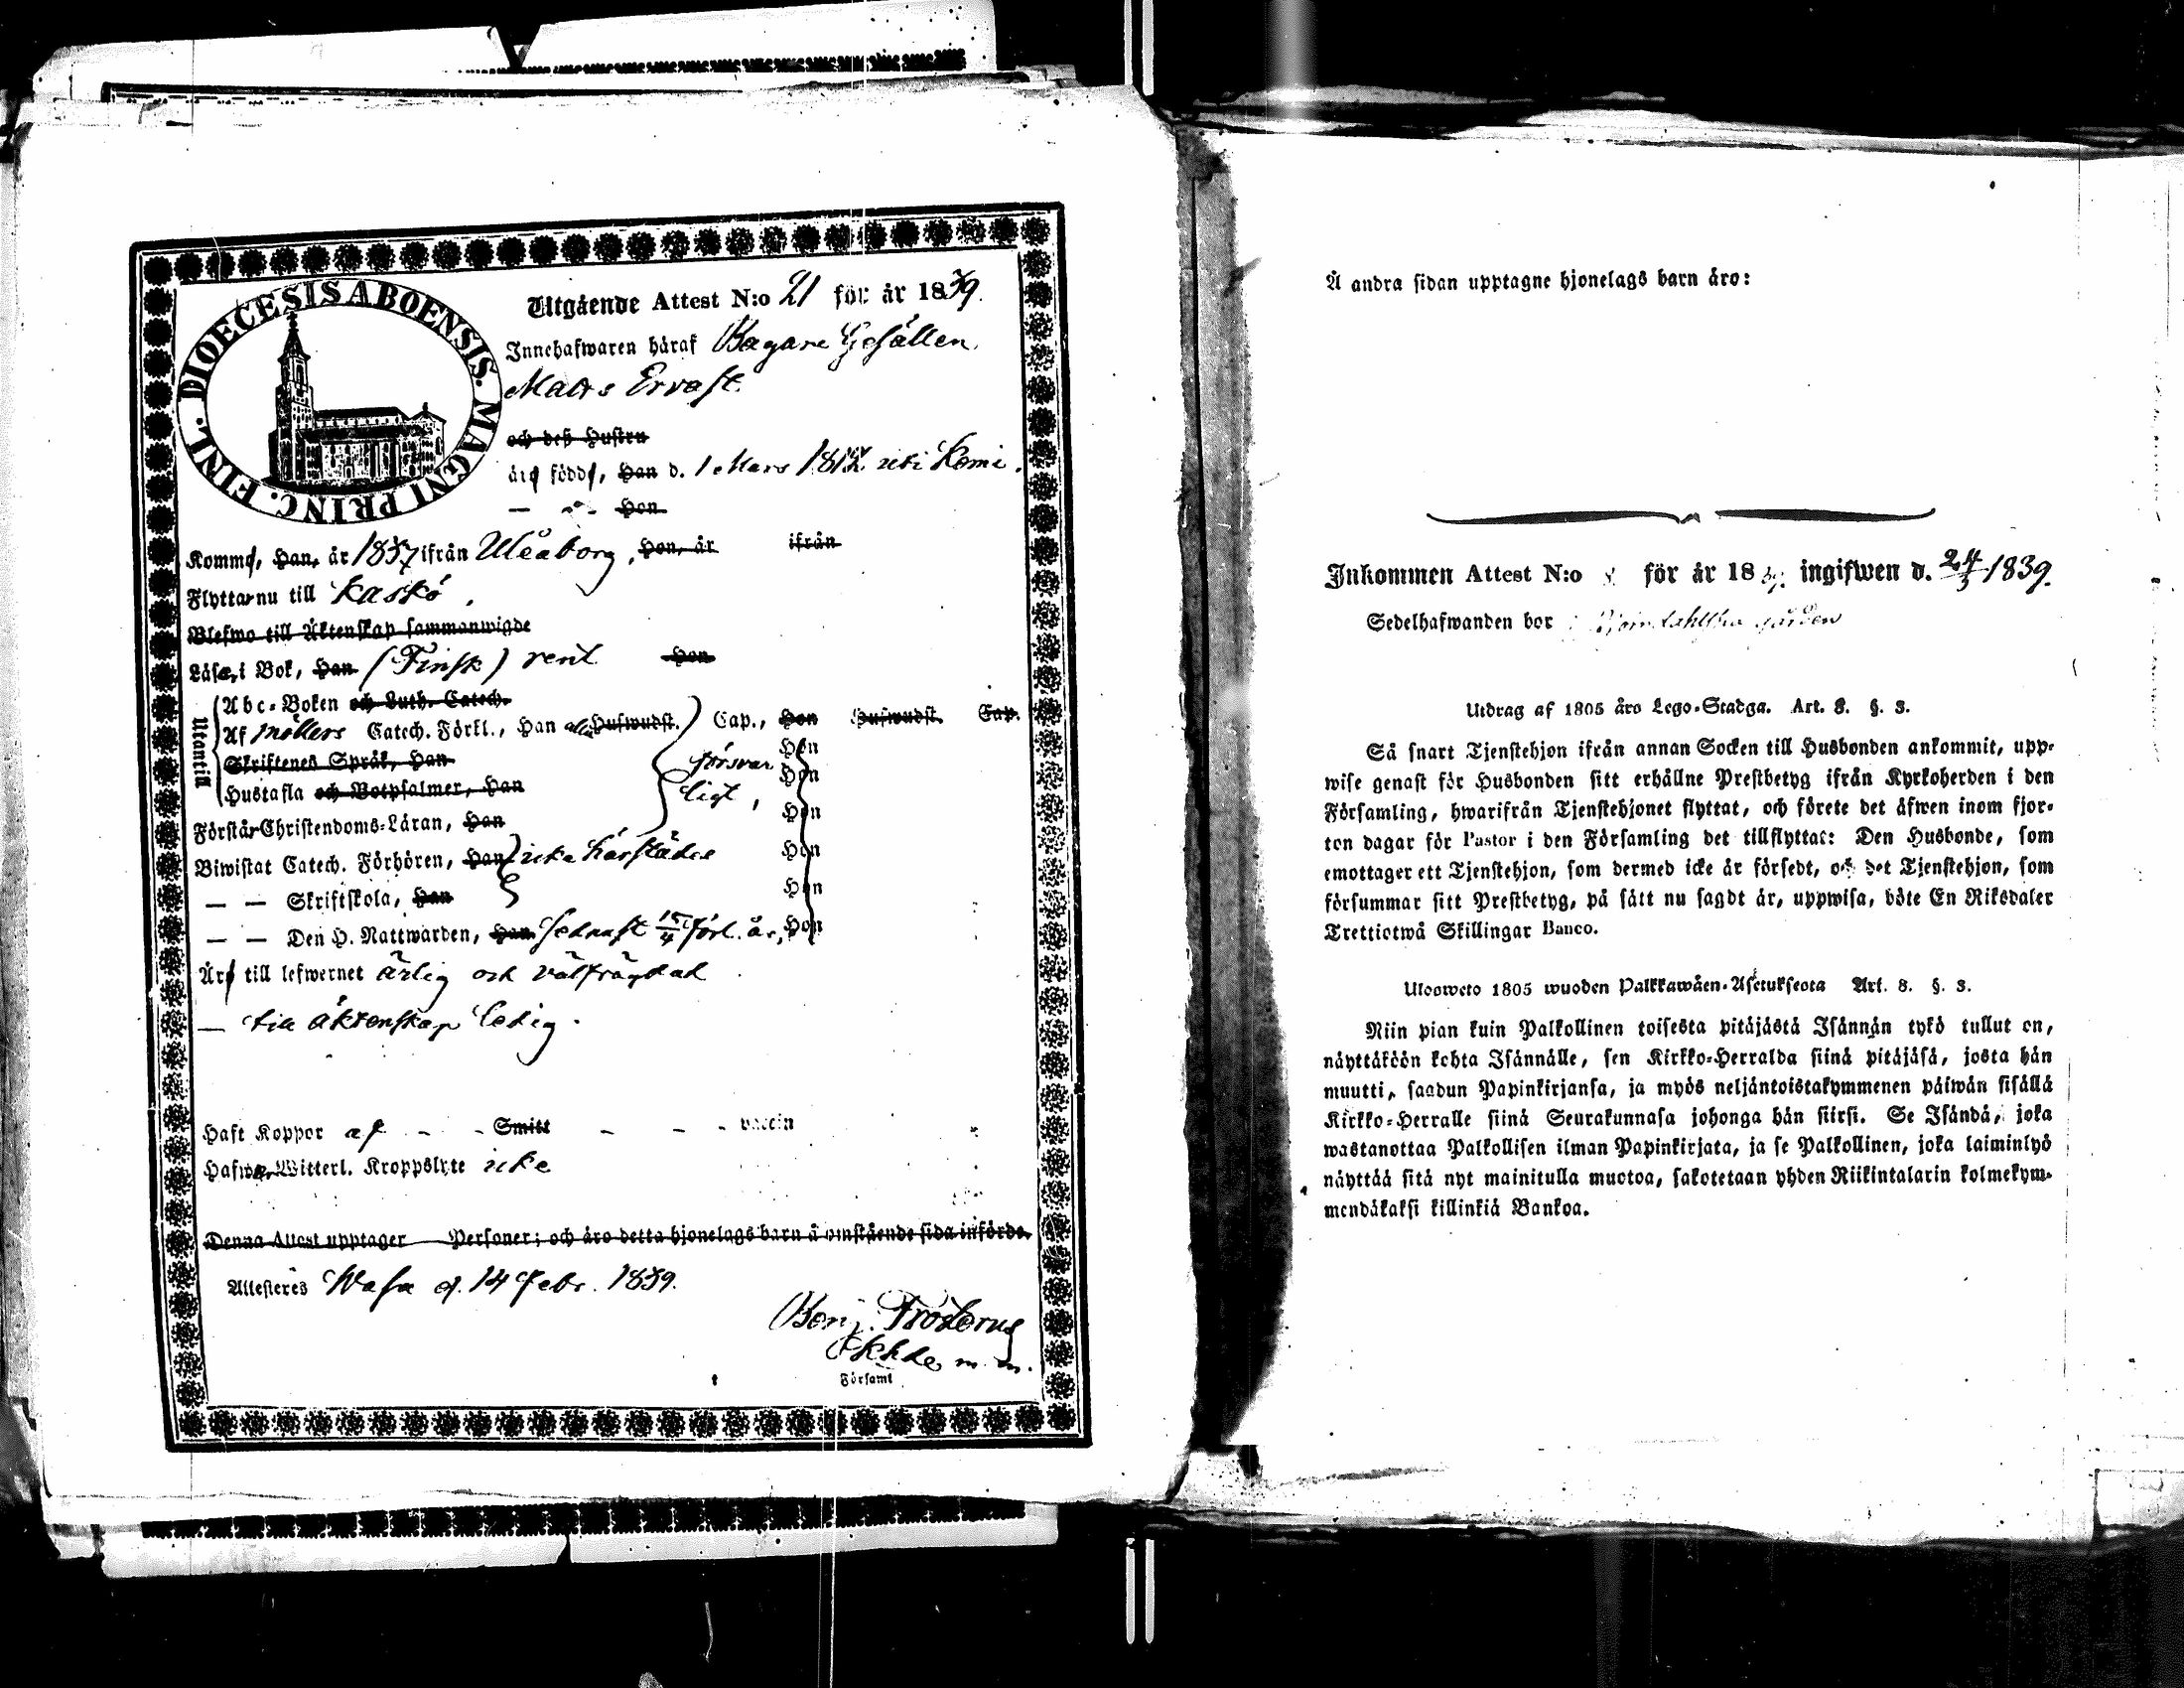 DIOECESIS ABOENSIS. MAGNI PRINC. FINL.
Utgående Attest N:o 21 för år 1839.
Innehafwaren häraf Bagare Gesällen
Matts Ervast
och deß Hustru
äro född, Han d. 1 Mars 1812 uti Kemi.
— „ Hon
Komme, Han, år 1837 ifrån Uleåborg, Hon, år ifrån
Flyttar nu till Kaskö.
Blefwo till Äktenskap sammanwigde
Läser i Bok, Han (Finsk) rent Hon
Utantill
Abc-Boken och Luth. Catech.
Af Möllers Catech. Förkl., Han alla Hufwudst. Cap., Hon Hufwudst. Cap.
Skriftenes Språk, Han Hon
Hustafla och Botpsalmer, Han försvar Hon
ligt,
Förstår Christendoms-Läran, Han Hon
Biwistat Catech. Förhören, Han icke härstädes Hon
— — Skriftskola, Han Hon
— — Den H. Nattwarden, Han sednast 15/4 förl. år, Hon
Är till lefwernet ärlig och välfrägdad
— till äktenskap ledig.
Haft Koppor af - - Smitt - - - vaccin
Hafwa Witterl. Kroppslyte icke
Denna Attest upptager Personer; och äro detta hjonelags barn å omstående sida införde.
Attesteres Wasa d. 14 Febr. 1839.
Benj. Frosterus
Pkhde m. m.
Församl
Å andra sidan upptagne hjonelags barn äro:
Inkommen Attest N:o 8 för år 1839. ingifwen d. 24/3 1839.
Sedelhafwanden bor i gården
Utdrag af 1805 års Lego-Stadga. Art. 8. §. 3.
Så snart Tjenstehjon ifrån annan Socken till Husbonden ankommit, upp-
wise genast för Husbonden sitt erhållne Prestbetyg ifrån Kyrkoherden i den
Församling, hwarifrån Tjenstehjonet flyttat, och förete det äfwen inom fjor-
ton dagar för Pastor i den Församling det tillflyttat: Den Husbonde, som
emottager ett Tjenstehjon, som dermed icke är försedt, och det Tjenstehjon, som
försummar sitt Prestbetyg, på sätt nu sagdt är, uppwisa, böte En Riksdaler
Trettiotwå Skillingar Banco.
Ulosweto 1805 wuoden Palkkawäen-Asetuksesta Art. 8. §. 3.
Niin pian kuin Palkollinen toisesta pitäjästä Isännän tykö tullut on,
näyttäköön kohta Isännälle, sen Kirkko-Herralda siinä pitäjäsä, josta hän
muutti, saadun Papinkirjansa, ja myös neljäntoistakymmenen päiwän sisällä
Kirkko-Herralle siinä Seurakunnasa johonga hän siirsi. Se Isändä, joka
wastanottaa Palkollisen ilman Papinkirjata, ja se Palkollinen, joka laiminlyö
näyttää sitä nyt mainitulla muotoa, sakotetaan yhden Riikintalarin kolmekym-
mendäkaksi killinkiä Bankoa.